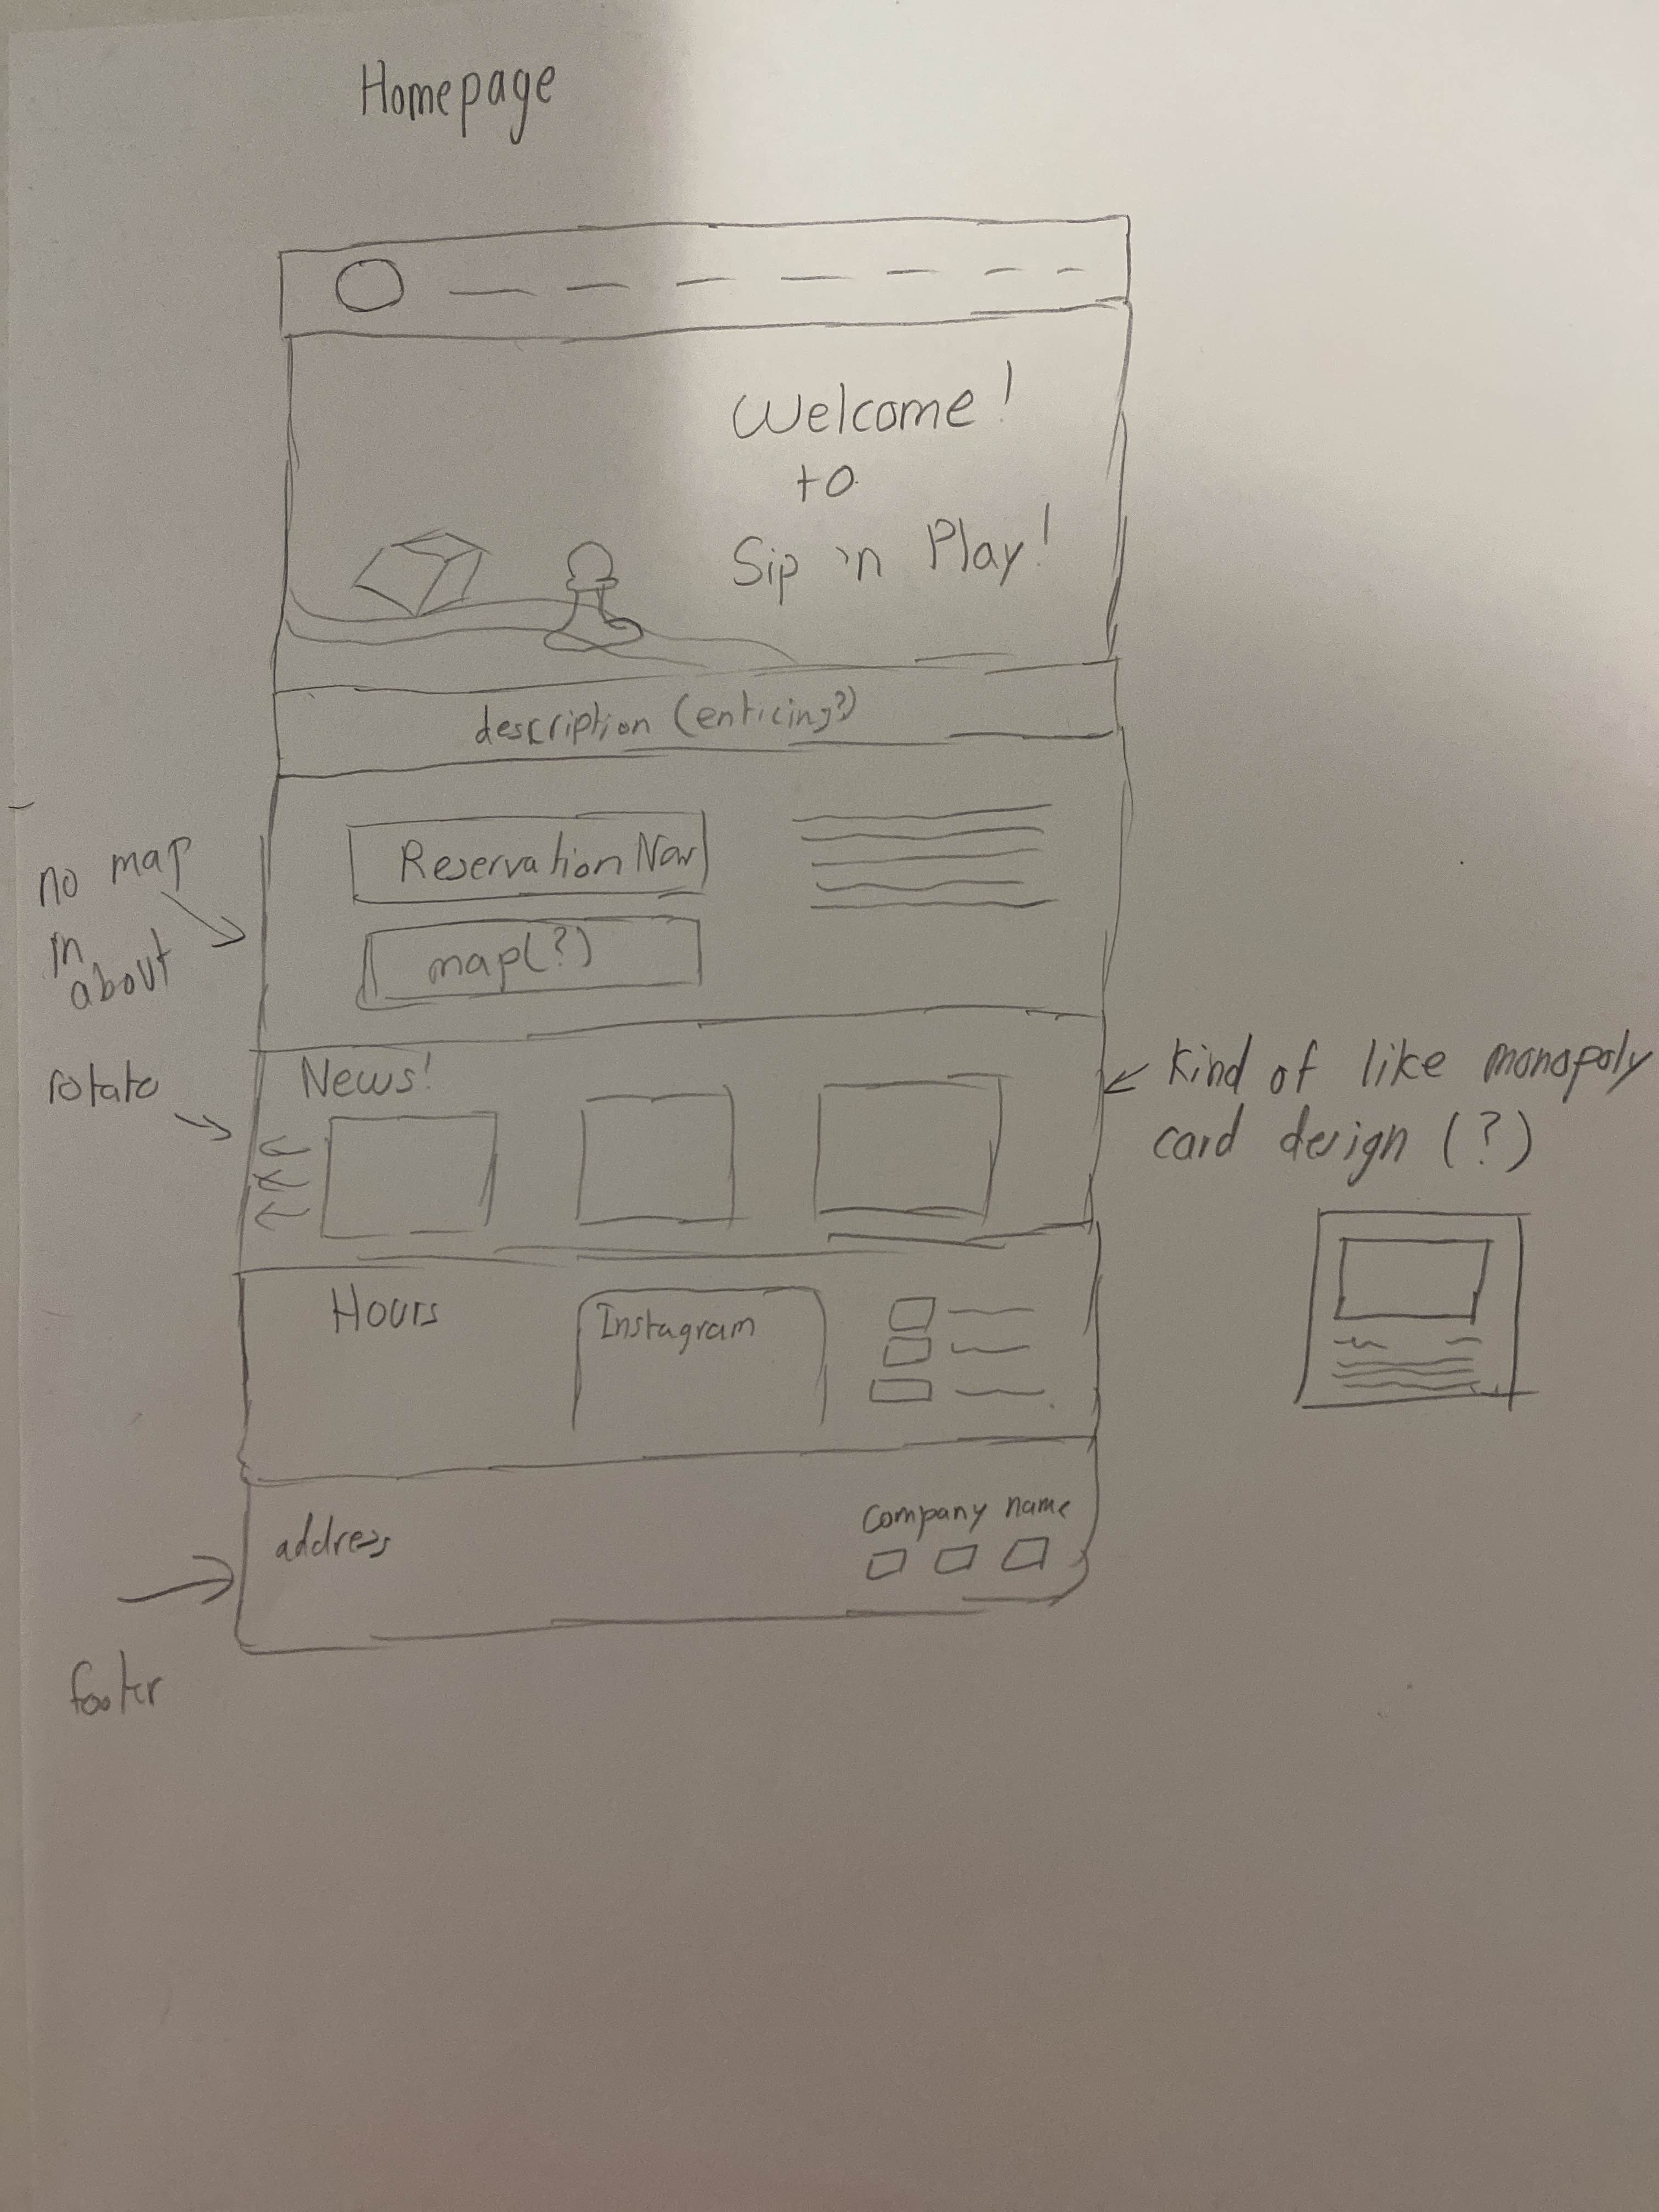 Homepage
Welcome!
to
Sip 'n Play!
description (enticing?)
Reservation Now
map(?)
no map
in
about
rotate
News!
Kind of like monopoly
card design (?)
Hours
Instagram
address
Company name
footer